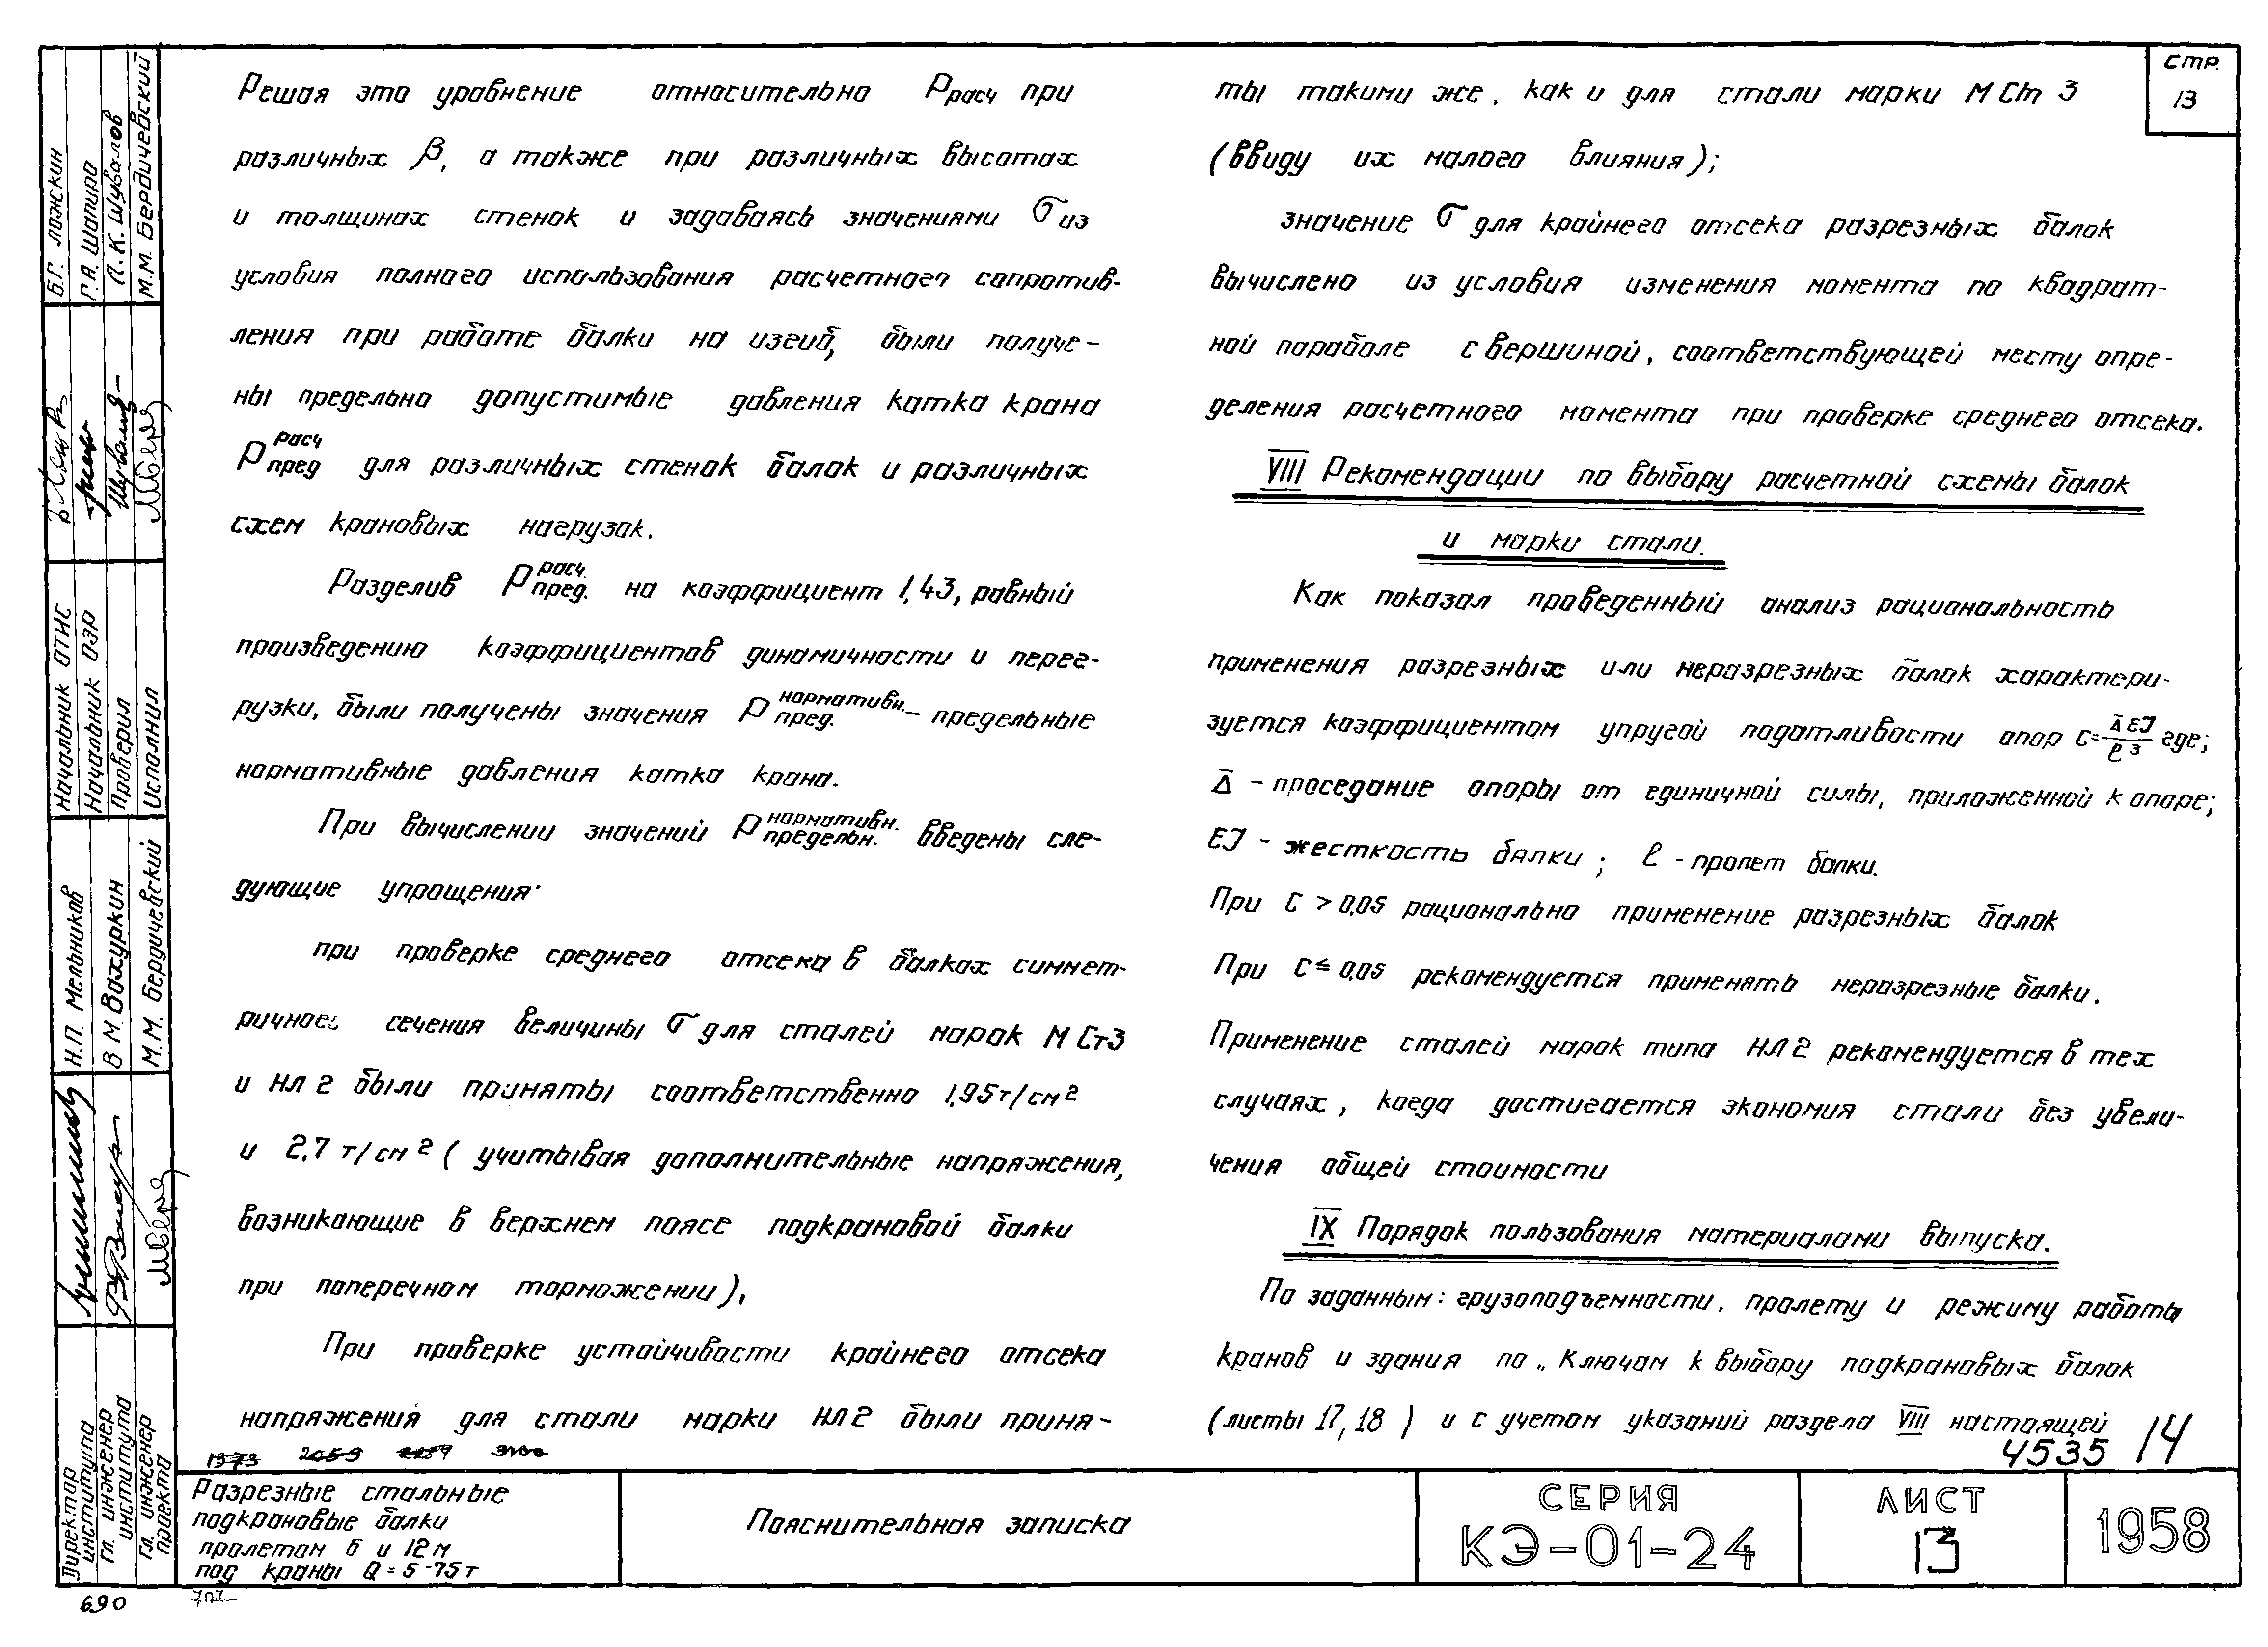 Стр.
13
Решая это уравнение относительно Pрасч при
различных β, а также при различных высотах
и толщинах стенок и задаваясь значениями σ из
условия полного использования расчетного сопротив-
ления при работе балки на изгиб, были получе-
ны предельно допустимые давления катка крана
P расч пред для различных стенок балок и различных
схем крановых нагрузок.
Разделив P расч. пред. на коэффициент 1,43, равный
произведению коэффициентов динамичности и перег-
рузки, были получены значения P нормативн. пред. – предельные
нормативные давления катка крана.
При вычислении значений P нормативн. предельн. введены сле-
дующие упрощения:
при проверке среднего отсека в балках симмет-
ричного сечения величины σ для сталей марок М Ст3
и НЛ 2 были приняты соответственно 1,95 т/см²
и 2,7 т/см² ( учитывая дополнительные напряжения,
возникающие в верхнем поясе подкрановой балки
при поперечном торможении ),
При проверке устойчивости крайнего отсека
напряжения для стали марки НЛ2 были приня-
ты такими же, как и для стали марки М Ст 3
( ввиду их малого влияния );
значение σ для крайнего отсека разрезных балок
вычислено из условия изменения момента по квадрат-
ной параболе с вершиной, соответствующей месту опре-
деления расчетного момента при проверке среднего отсека.
VIII Рекомендации по выбору расчетной схемы балок
и марки стали.
Как показал проведенный анализ рациональность
применения разрезных или неразрезных балок характери-
зуется коэффициентом упругой податливости опор C= Δ̄ EJ / ℓ³ где;
Δ̄ – проседание опоры от единичной силы, приложенной к опоре;
EJ – жесткость балки ; ℓ – пролет балки.
При C > 0,05 рационально применение разрезных балок
При C ≤ 0,05 рекомендуется применять неразрезные балки.
Применение сталей марок типа НЛ 2 рекомендуется в тех
случаях, когда достигается экономия стали без увели-
чения общей стоимости
IX Порядок пользования материалами выпуска.
По заданным: грузоподъемности, пролету и режиму работы
кранов и здания по „Ключам к выбору подкрановых балок
(листы 17, 18 ) и с учетом указаний раздела VIII настоящей
1973 2059 3100
4535 14
Б.Г. Ложкин
Г.А. Шапиро
П.К. Шувалов
М.М. Бердичевский
Начальник ОТИС
Начальник ОЭР
Проверил
Исполнил
Н.П. Мельников
В.М. Вахуркин
М.М. Бердичевский
Директор института
Гл. инженер института
Гл. инженер проекта
Разрезные стальные
подкрановые балки
пролетом 6 и 12 м
под краны Q = 5-75 т
Пояснительная записка
СЕРИЯ
КЭ-01-24
ЛИСТ
13
1958
690
707